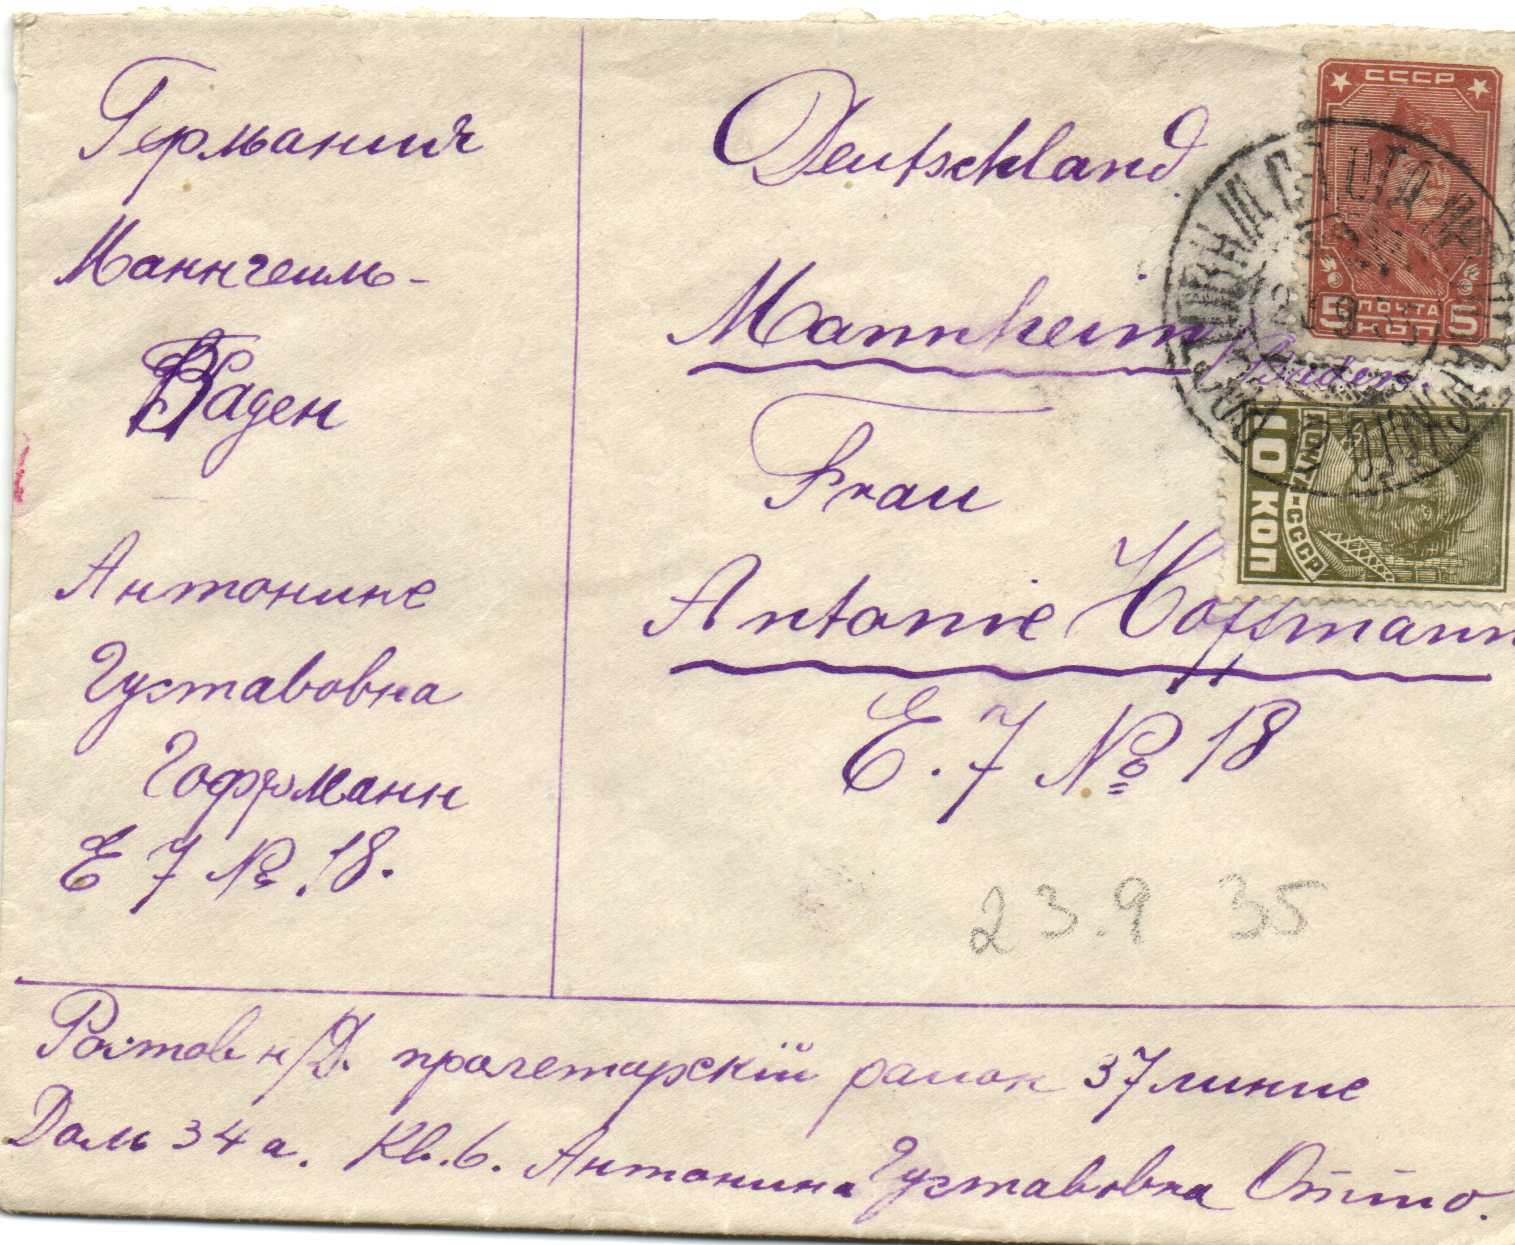 Германия
Маннгеимъ-
Баден
Антонине
Густавовна
Гофманн
Е 7 № 18.
Deutschland
Mannheim / Baden.
Frau
Antonie Hoffmann
E. 7 № 18
23.9 35
Ростов н/Д. пролетарскій раион 37 линие
Домъ 34 а. Кв. 6. Антонина Густавовна Отто.
СССР
5 ПОЧТА 5
КОП
10 КОП
ПОЧТА-СССР